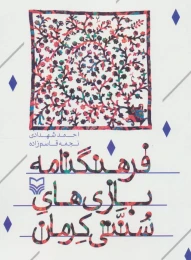 احمد شهدادی
نجمه قاسم‌زاده
فرهنگنامه
بازی‌های
سُنّتی کرمان